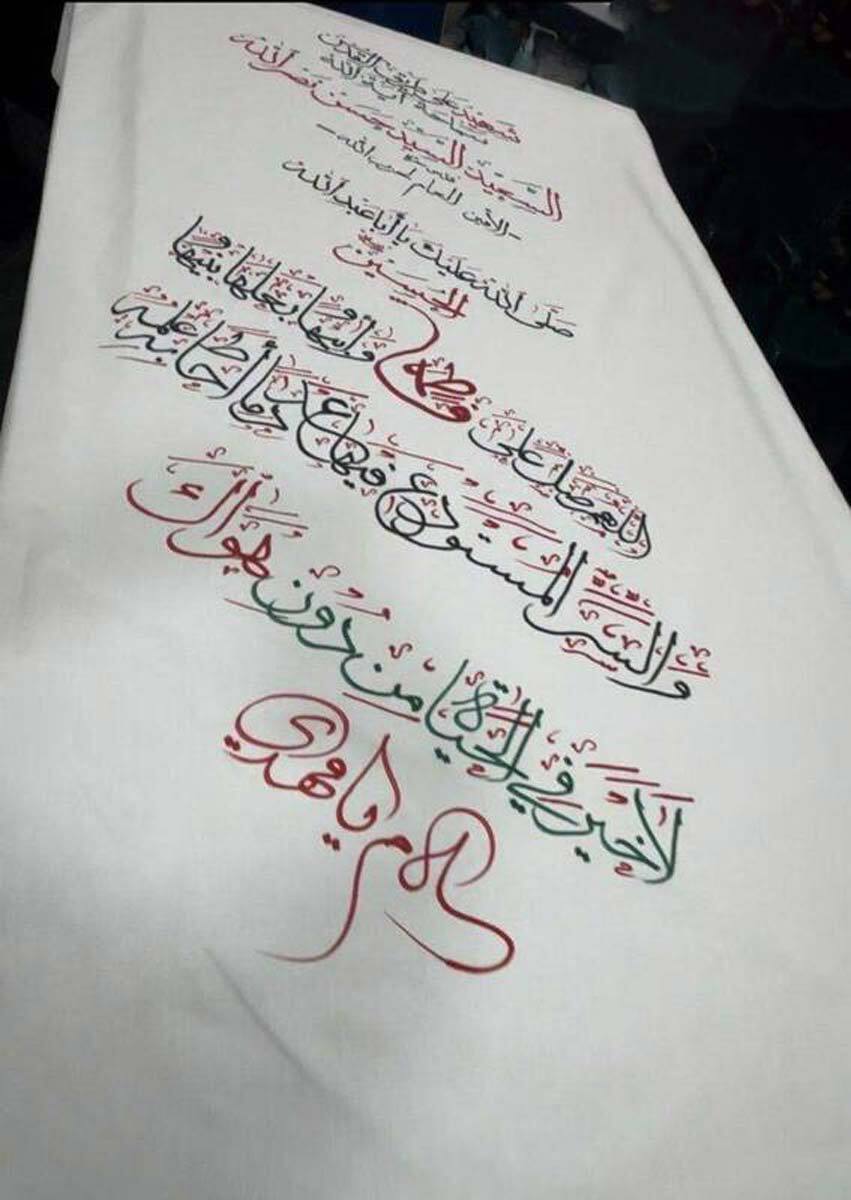 شهيد على طريق القدس
سماحة آية الله
السعيد السيد حسن نصر الله
قدس سره
- الأمين العام لحزب الله -
صَلَّى اللهُ عَلَيْكَ يا أبا عَبْدِ اللهِ
الحُسَيْن
اللهم صَلِّ عَلى فاطمة وأبيها وبعلها وبنيها
والسِّرِّ المُسْتَوْدَعِ فيها عَدَدَ ما أحاطَ بِهِ عِلْمُك
لا خَيْرَ في الحَياةِ مِنْ دُونِ هَواك
سلام يا مهدي